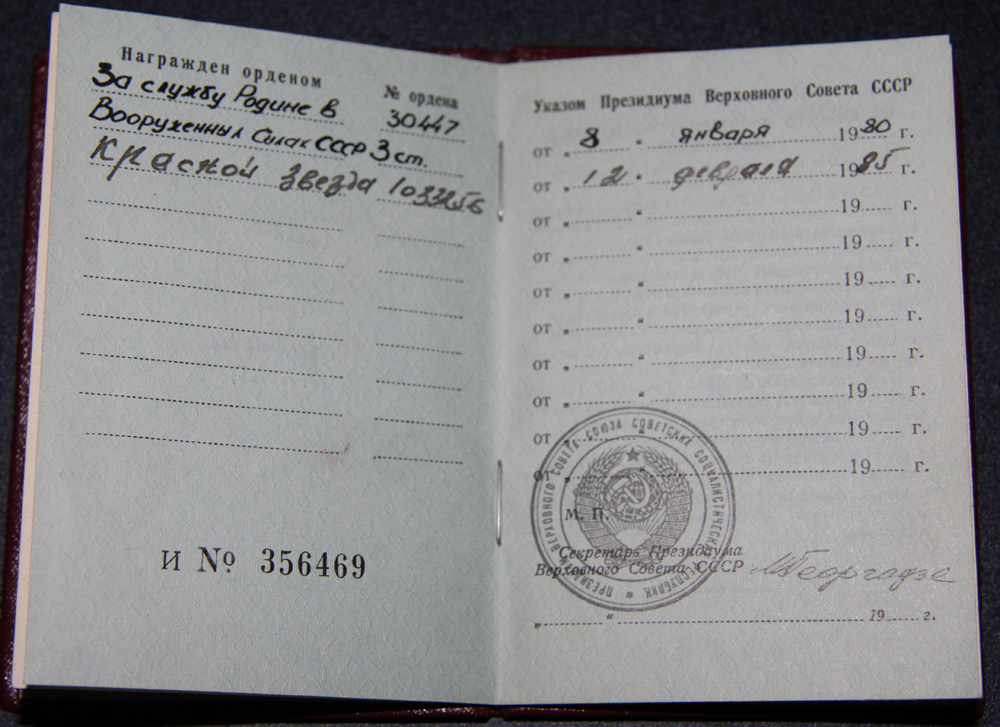 Награжден орденом № ордена
За службу Родине в 30447
Вооруженных Силах СССР 3 ст.
Красной Звезда 1033256
И № 356469
Указом Президиума Верховного Совета СССР
от „ 8 “ января 1980 г.
от „ 12 “ февраля 1985 г.
от „ “ 19 г.
от „ “ 19 г.
от „ “ 19 г.
от „ “ 19 г.
от „ “ 19 г.
от „ “ 19 г.
от „ “ 19 г.
от „ “ 19 г.
ПРЕЗИДИУМ ВЕРХОВНОГО СОВЕТА СОЮЗА СОВЕТСКИХ СОЦИАЛИСТИЧЕСКИХ РЕСПУБЛИК
М. П.
Секретарь Президиума
Верховного Совета СССР МГеоргадзе
„ “ 19 г.